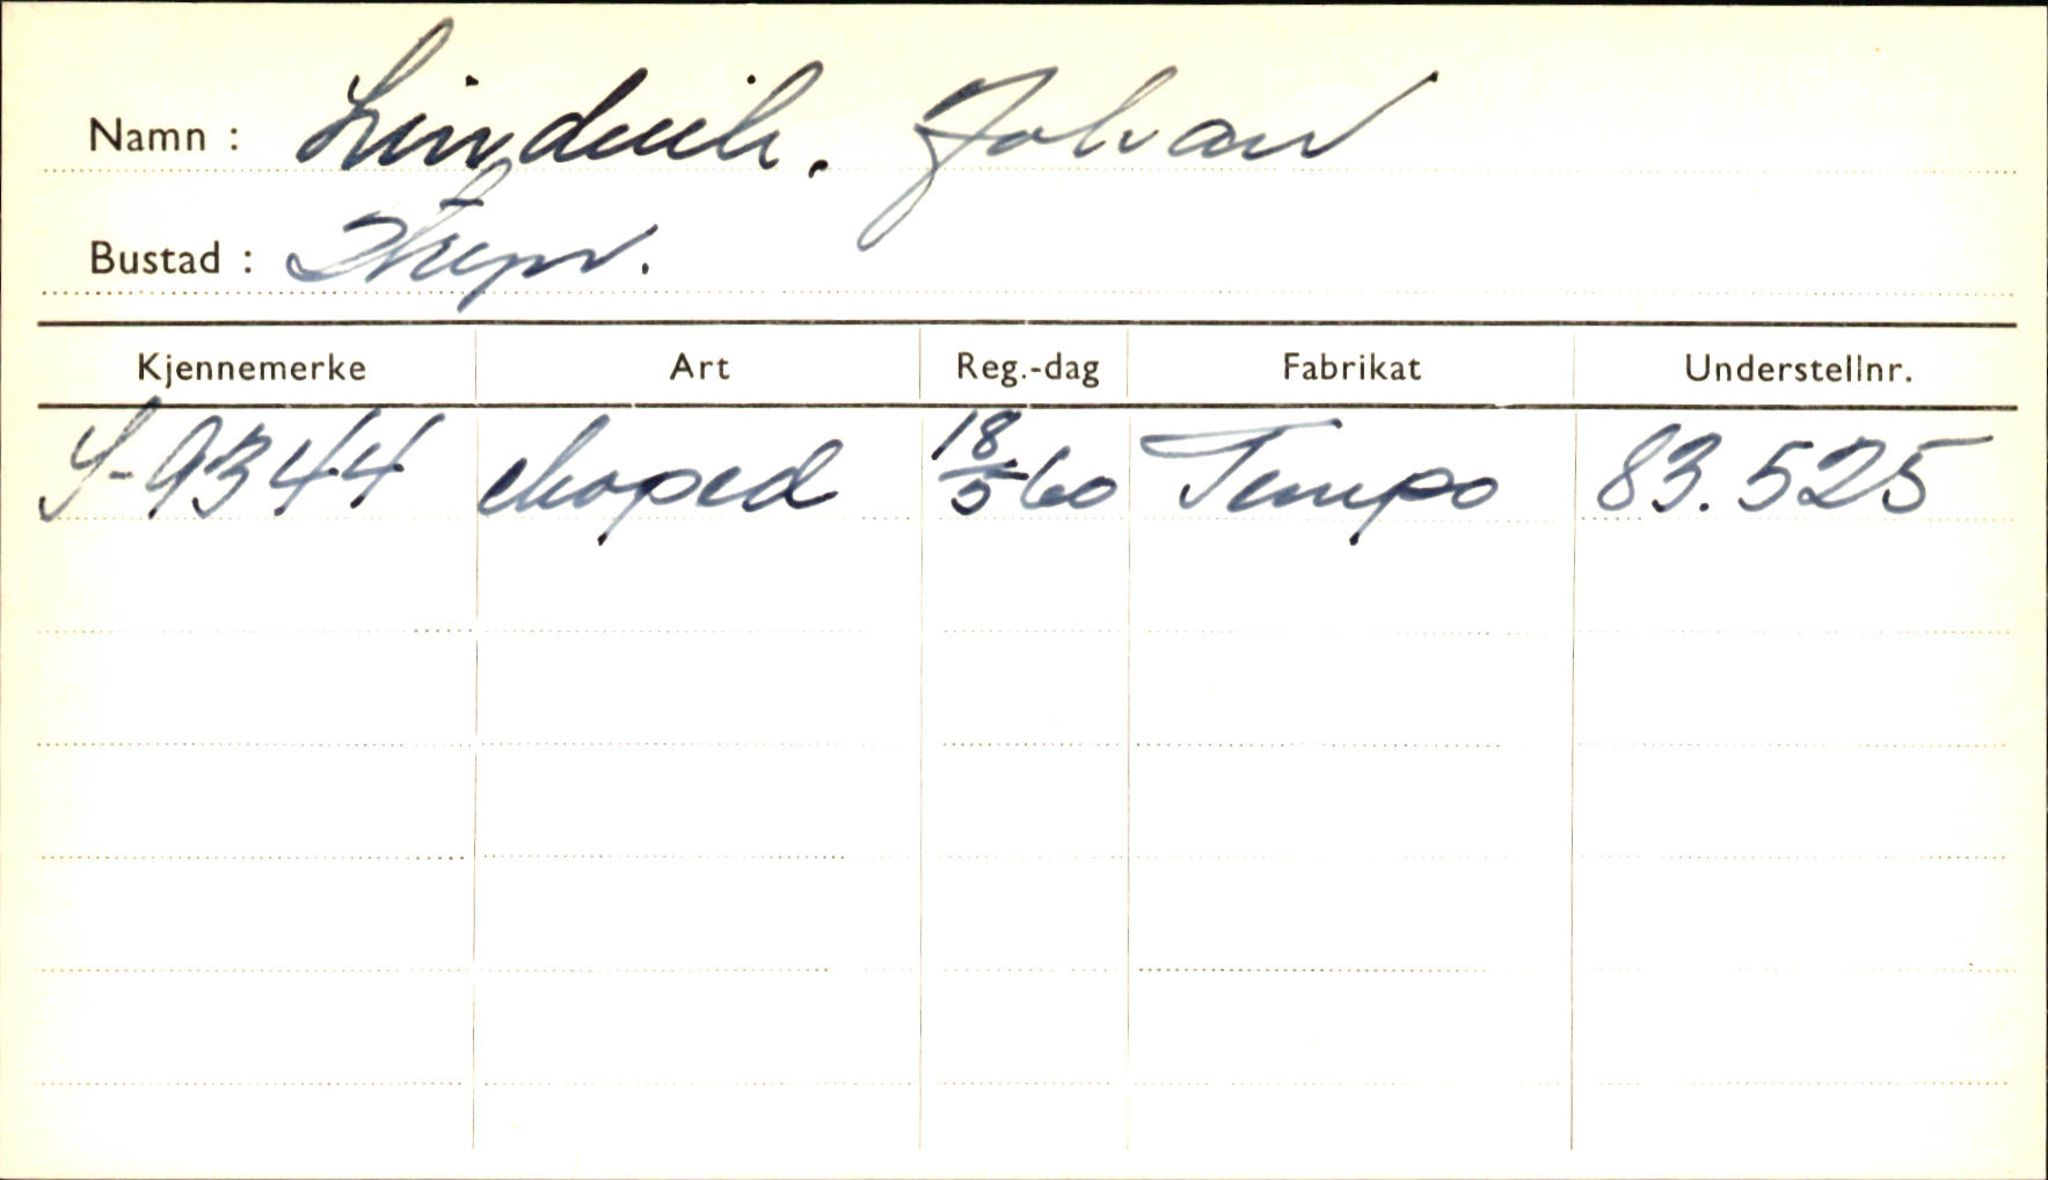 Namn : Lindvik. Johan
Bustad : Stryn.
Kjennemerke Art Reg.-dag Fabrikat Understellnr.
S-9344 Moped 18/5 60 Tempo 83.525